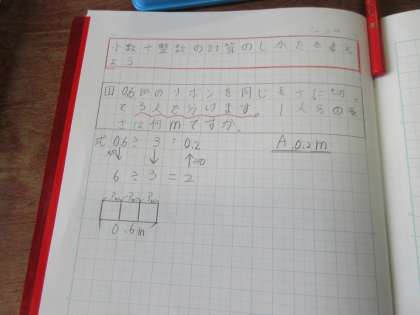 小数÷整数の計算のしかたを考え
よう
問 0.6mのリボンを同じ長さに切っ
て3人で分けます。1人分の長
さは何mですか。
式 0.6÷3=0.2
A 0.2m
6÷3=2
0.6m